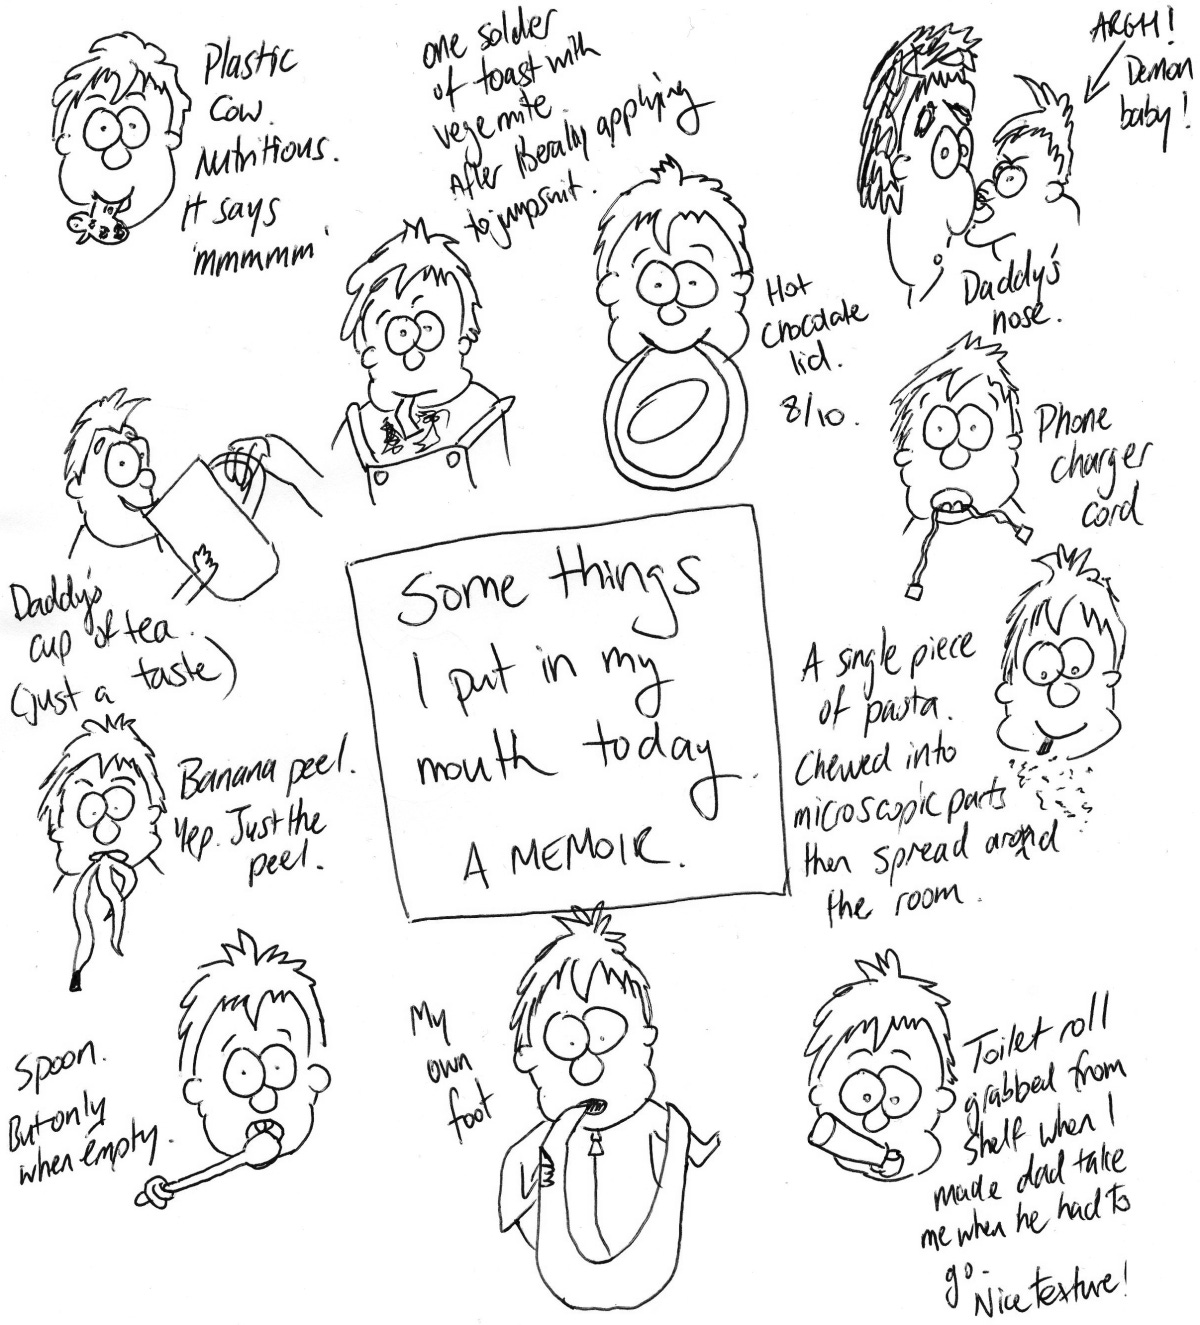 Plastic
Cow.
Nutritious.
It says
'mmmmm'
one soldier
of toast with
vegemite.
After liberally applying
to jumpsuit.
ARGH!
Demon
baby!
Daddy's
nose.
Hot
chocolate
lid.
8/10.
Phone
charger
cord
Daddy's
cup of tea.
(just a taste)
Some things
I put in my
mouth today.
A MEMOIR.
A single piece
of pasta.
Chewed into
microscopic parts
then spread around
the room.
Banana peel.
Yep. Just the
peel.
Spoon.
But only
when empty.
My
own
foot
Toilet roll
grabbed from
shelf when I
made dad take
me when he had to
go.
Nice texture!